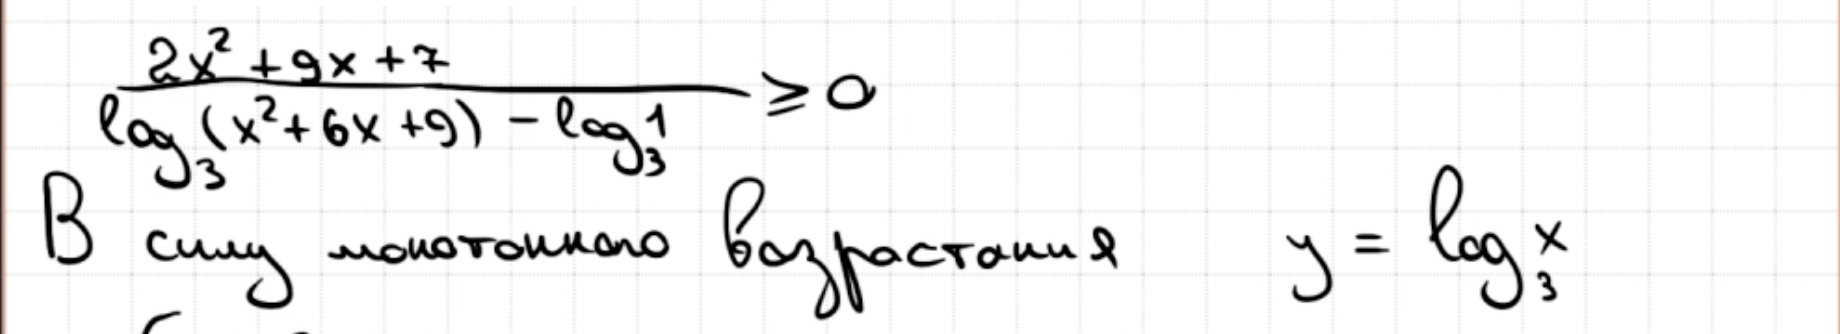 2x² + 9x + 7
log₃(x² + 6x + 9) - log₃1 ≥ 0
В силу монотонного возрастания y = log₃x